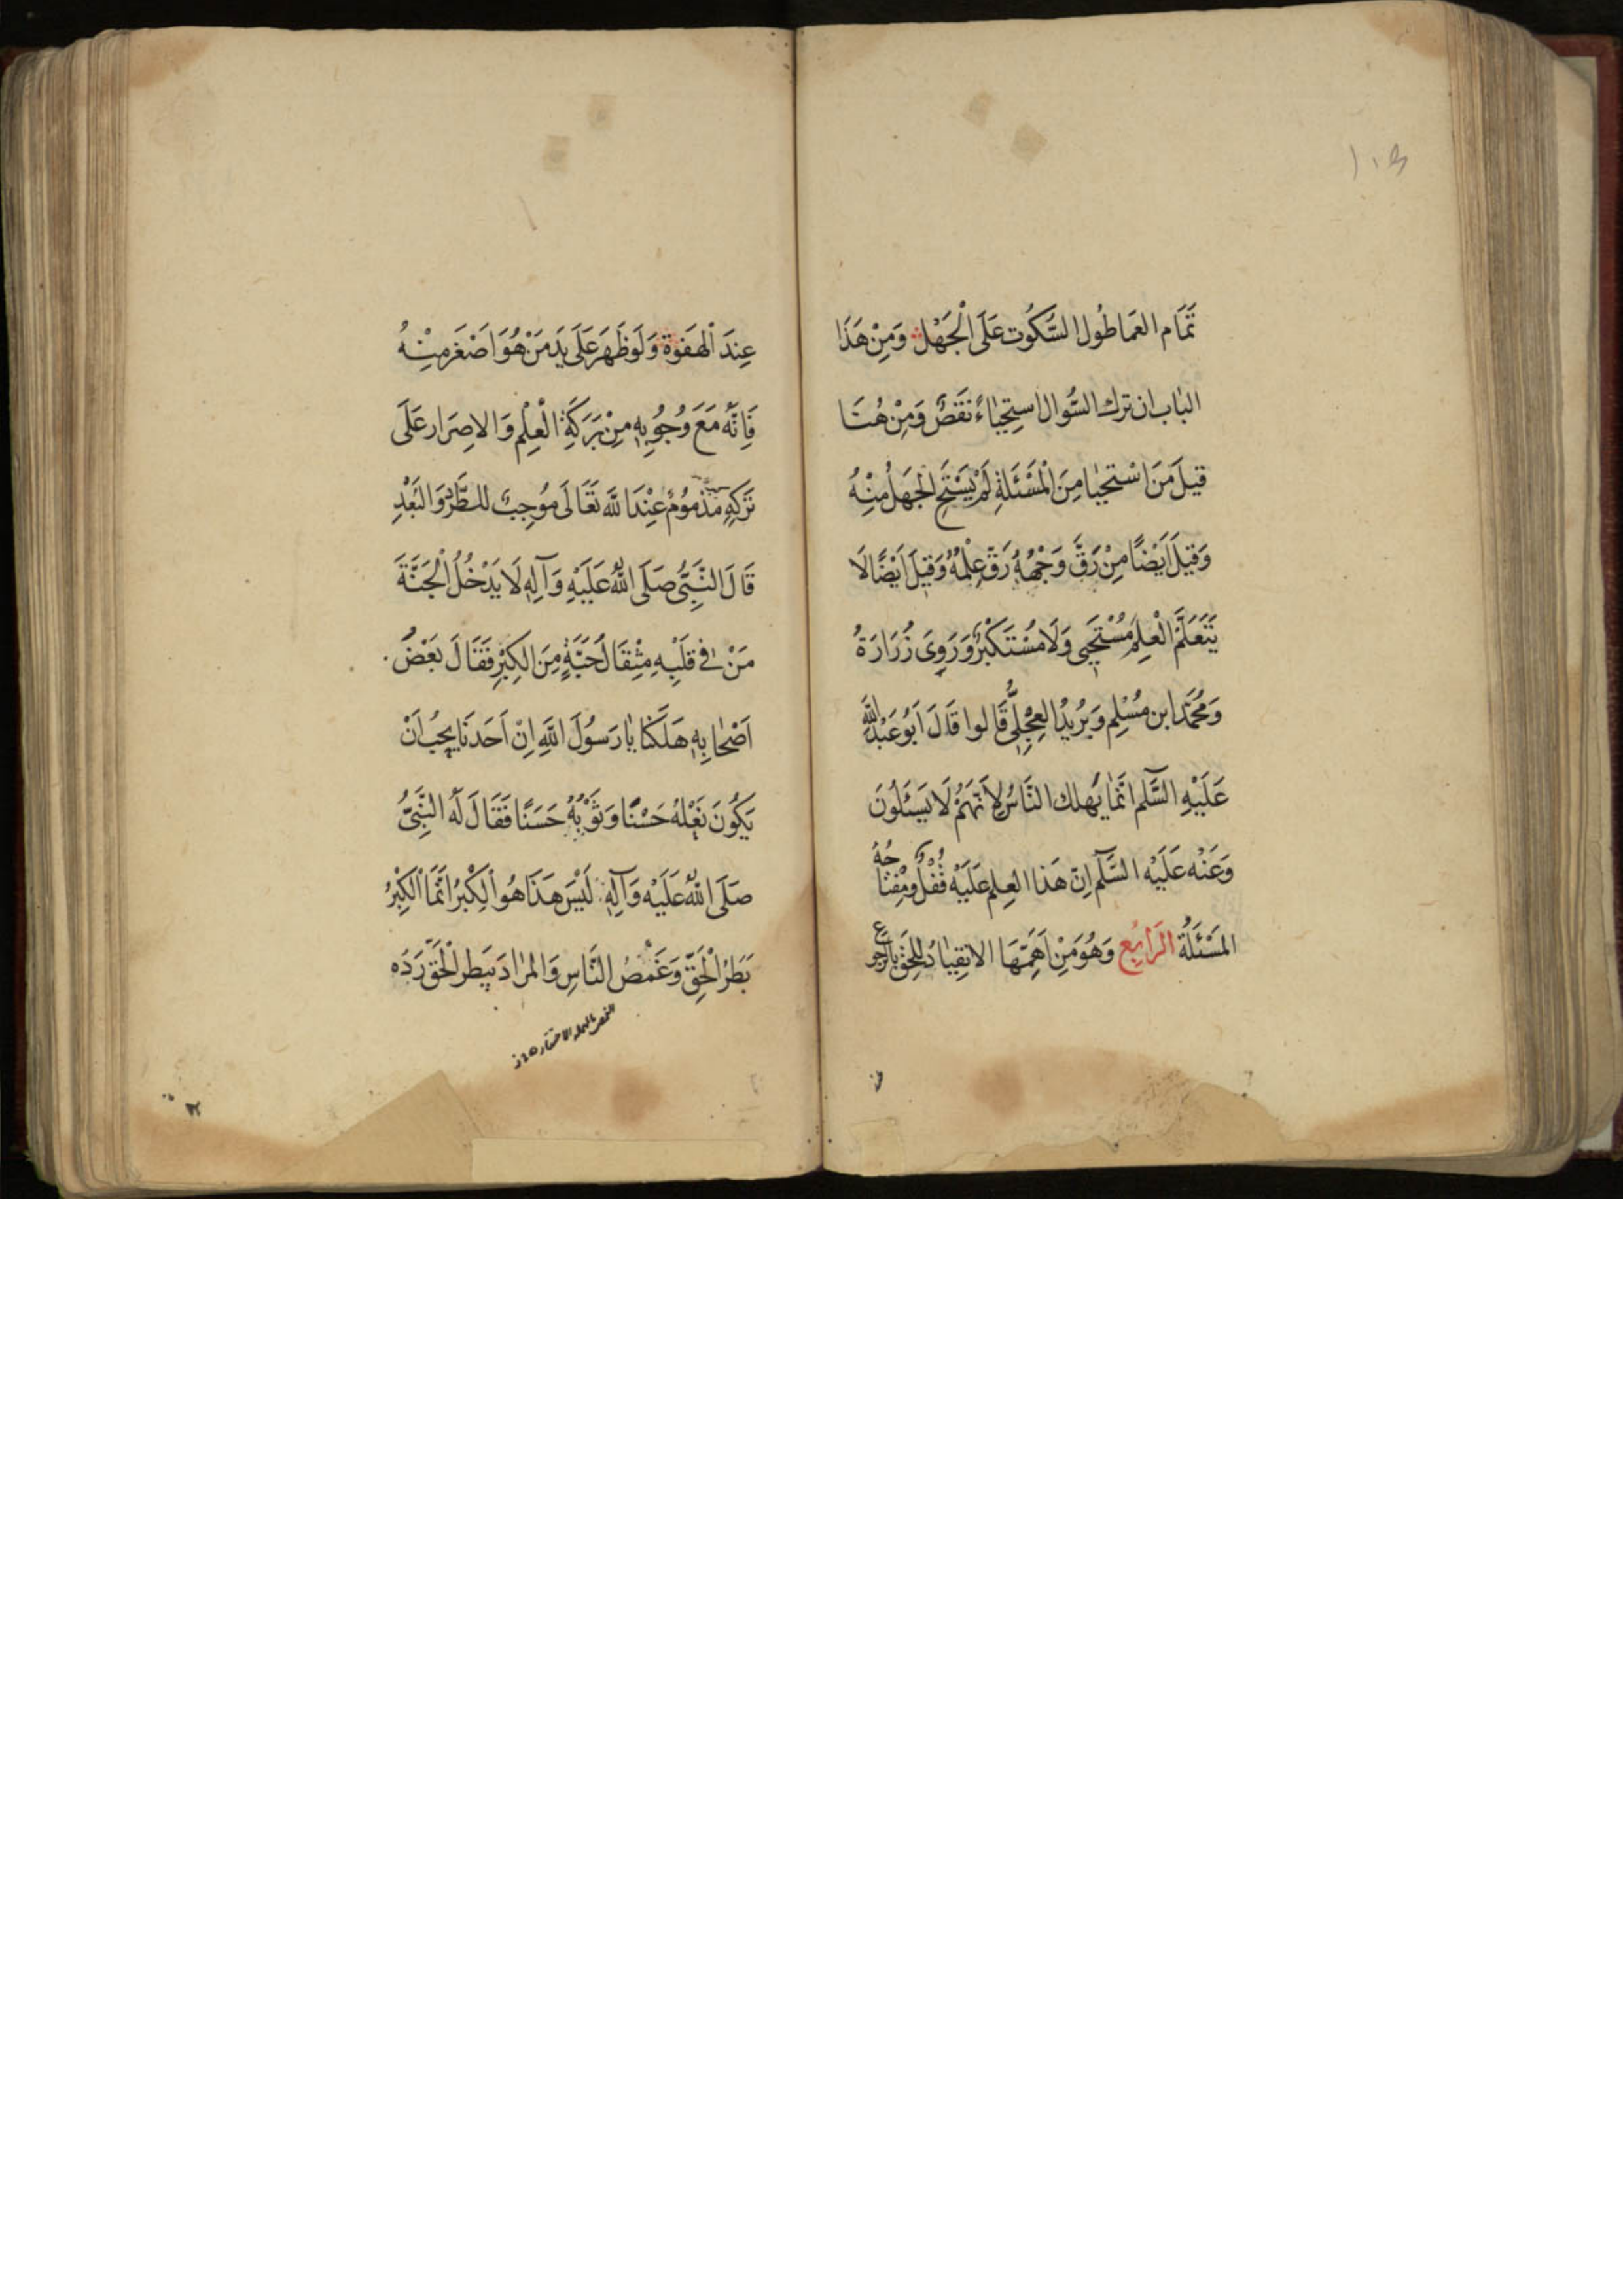 ١٠٥
تَمَام العَما طُول السُّكُوت عَلَى الْجَهْل وَمِنْ هَذَا
البٰاب ان ترك السُّوال اسْتِحْيٰاءً نَقَصٌ وَمِنْ هُنَا
قيلَ مَنَ اسْتحيٰا مِنَ الْمَسْئَلَةِ لَمْ يَسْتَحِ الجَهلُ مِنْهُ
وَقيلَ اَيْضًا مِنْ رَقَّ وَجْهُهُ رَقَّ عِلْمُهُ وَقيلَ اَيْضًا لَا
يَتَعَلَّمُ الْعِلْمَ مُسْتَحْيِي وَلَا مُسْتَكْبِرٌ وَرَوِىَ زُرَارَةُ
وَمُحَمَّد ابن مُسْلِمٍ وَبَرُيدُ العِجْلِىُّ قَالوا قَالَ اَبُو عَبْدِ اللَّهِ
عَلَيْهِ السَّلٓم انَّمٰا يَهلك النَّاسُ لِاَنَّهُمْ لَا يَسْئَلُونَ
وَعَنْه عَلَيْه السَّلٓم اِنّ هَذا العِلم عَلَيْه قُفْلٌ وَمِفْتٰاحُهُ
المَسْئَلَةُ الرَّابِع وَهُوَ مَنْ اَهَمِّهَا الانقِيٰادُ لِلْحَقِّ بِالرُّجوع
عِندَ الْهَفَوْة وَلَوْ ظَهَرَ عَلَى يَدِ مَنْ هُوَ اَصْغَر مِنْهُ
فَاِنَّهُ مَعَ وُجُوبِهِ مِنْ بَرَكَةِ الْعِلْمِ وَالاصِرَار عَلَى
تَركِهِ مَذْمُومٌ عِنْدَ اللَّهِ تَعَالَى مُوجِبٌ للطَّرْدِ وَالبُعْدِ
قَالَ النَّبِىُّ صَلَّى اللهُ عَلَيْهِ وَآلِهِ لَا يَدْخُلُ الْجَنَّةَ
مَنْ فى قَلْبِهِ مِثْقَالَ حَبَّةٍ مِنَ الكِبْرِ فَقَالَ بَعْضُ
اَصْحٰابِهِ هَلَكْنٰا يٰا رَسُولَ اللَّهِ اِنْ اَحَدَنَا يُحِبُّ اَنْ
يَكُونَ نَعْلهُ حَسْنًا وَثَوْبُهُ حَسَنًا فَقَالَ لَهُ النَّبِىُّ
صَلَّى اللهُ عَلَيْهِ وَآلِهِ لَيْسَ هَذَا هُوَ الْكِبْرُ انَّمَا الْكِبْرُ
بَطَرُ الْحَقِّ وَغَمْصُ النَّاسِ وَالمرٰاد بَبَطر الْحَقِّ رَدّه